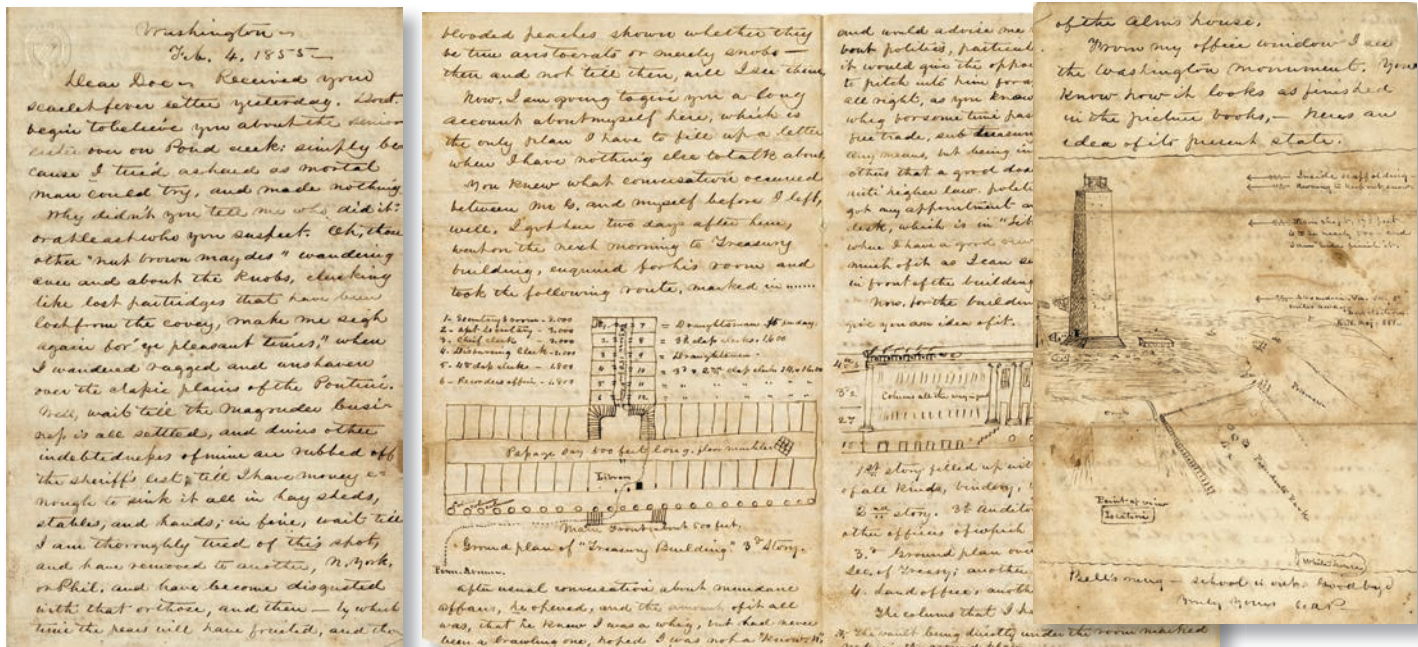 Washington
Feb. 4, 1855
Dear Doc Received your
scarlet fever letter yesterday. Dont
begin to believe you about the senior
over on Pond creek; simply be
cause I tried as hard as mortal
man could try, and made nothing
Why didn't you tell me who did it?
or at least who you suspect. Oh, them
other "nut brown maydes" wandering
over and about the Knobs, clucking
like lost partridges that have been
lost from the covey, make me sigh
again for "ye pleasant times," when
I wandered ragged and unshaven
over the classic plains of the Pontine.
Well, wait till the Magruder busi
ness is all settled, and divers other
indebtednesses of mine are rubbed off
the sheriff's list, till I have money e
nough to sink it all in hay sheds,
stables, and hands; in fine, wait till
I am thoroughly tired of this spot,
and have removed to another, N. York,
or Phil. and have become disgusted
with that or those, and then — by which
time the pears will have fruited, and the
blooded peaches shown whether they
be true aristocrats or merely snobs —
then and not till then, will I see them,
Now, I am going to give you a long
account about myself here, which is
the only plan I have to fill up a letter
when I have nothing else to talk about,
You know what conversation occurred
between Mr G. and myself before I left,
well. I got here two days after here,
went on the next morning to Treasury
building, enquired for his room and
took the following route, marked in ......
1 - Secretary's room - 8.000
2 - Asst Secretary - 3.000
3 - Chief clerk - 2.000
4 - Disbursing Clerk - 2.000
5 - 4th class clerks - 1800
6 - Recorders office - 1800
7 = Draughtsman
8 = 3d class clerks. 1600
9 = Draughtsmen
10 = 3d & 2nd class clerks
Passage say 500 feet long, floor marble
Library
Main Front about 500 feet.
Ground plan of "Treasury Building" 3d Story.
After usual conversation about mundane
affairs, he opened, and the amount of it all
was, that he knew I was a whig, but had never
been a brawling one, hoped I was not a "Know. N.
and would advise me
bout politics, particul
it would give the oppo
to pitch into him for a
all right, as you know
whig for some time pas
free trade, sub treasur
any means, but being in
others that a good dea
anti higher law politi
got my appointment a
desk, which is in
where I have a good
much of it as I can se
in front of the building
Now, for the buildin
give you an idea of it.
4th
3d
2d
1st
Columns all the way
1st story filled up wit
of all kinds, binding,
2nd story. 3d Audito
other offices of which
3.d Ground plan ove
Sec. of Treasy; another
4. Land office, anoth
The column that I ha
The vault being directly under the room marked
of the Alms house.
From my office window I see
the Washington monument. You
Know how it looks as finished
in the picture books,— here's an
idea of its present state.
Inside scaffolding
Alexandria, Va.
President's Park
Point of view
Location
White house
Bell's rung — school is out. Good bye
Truly yours